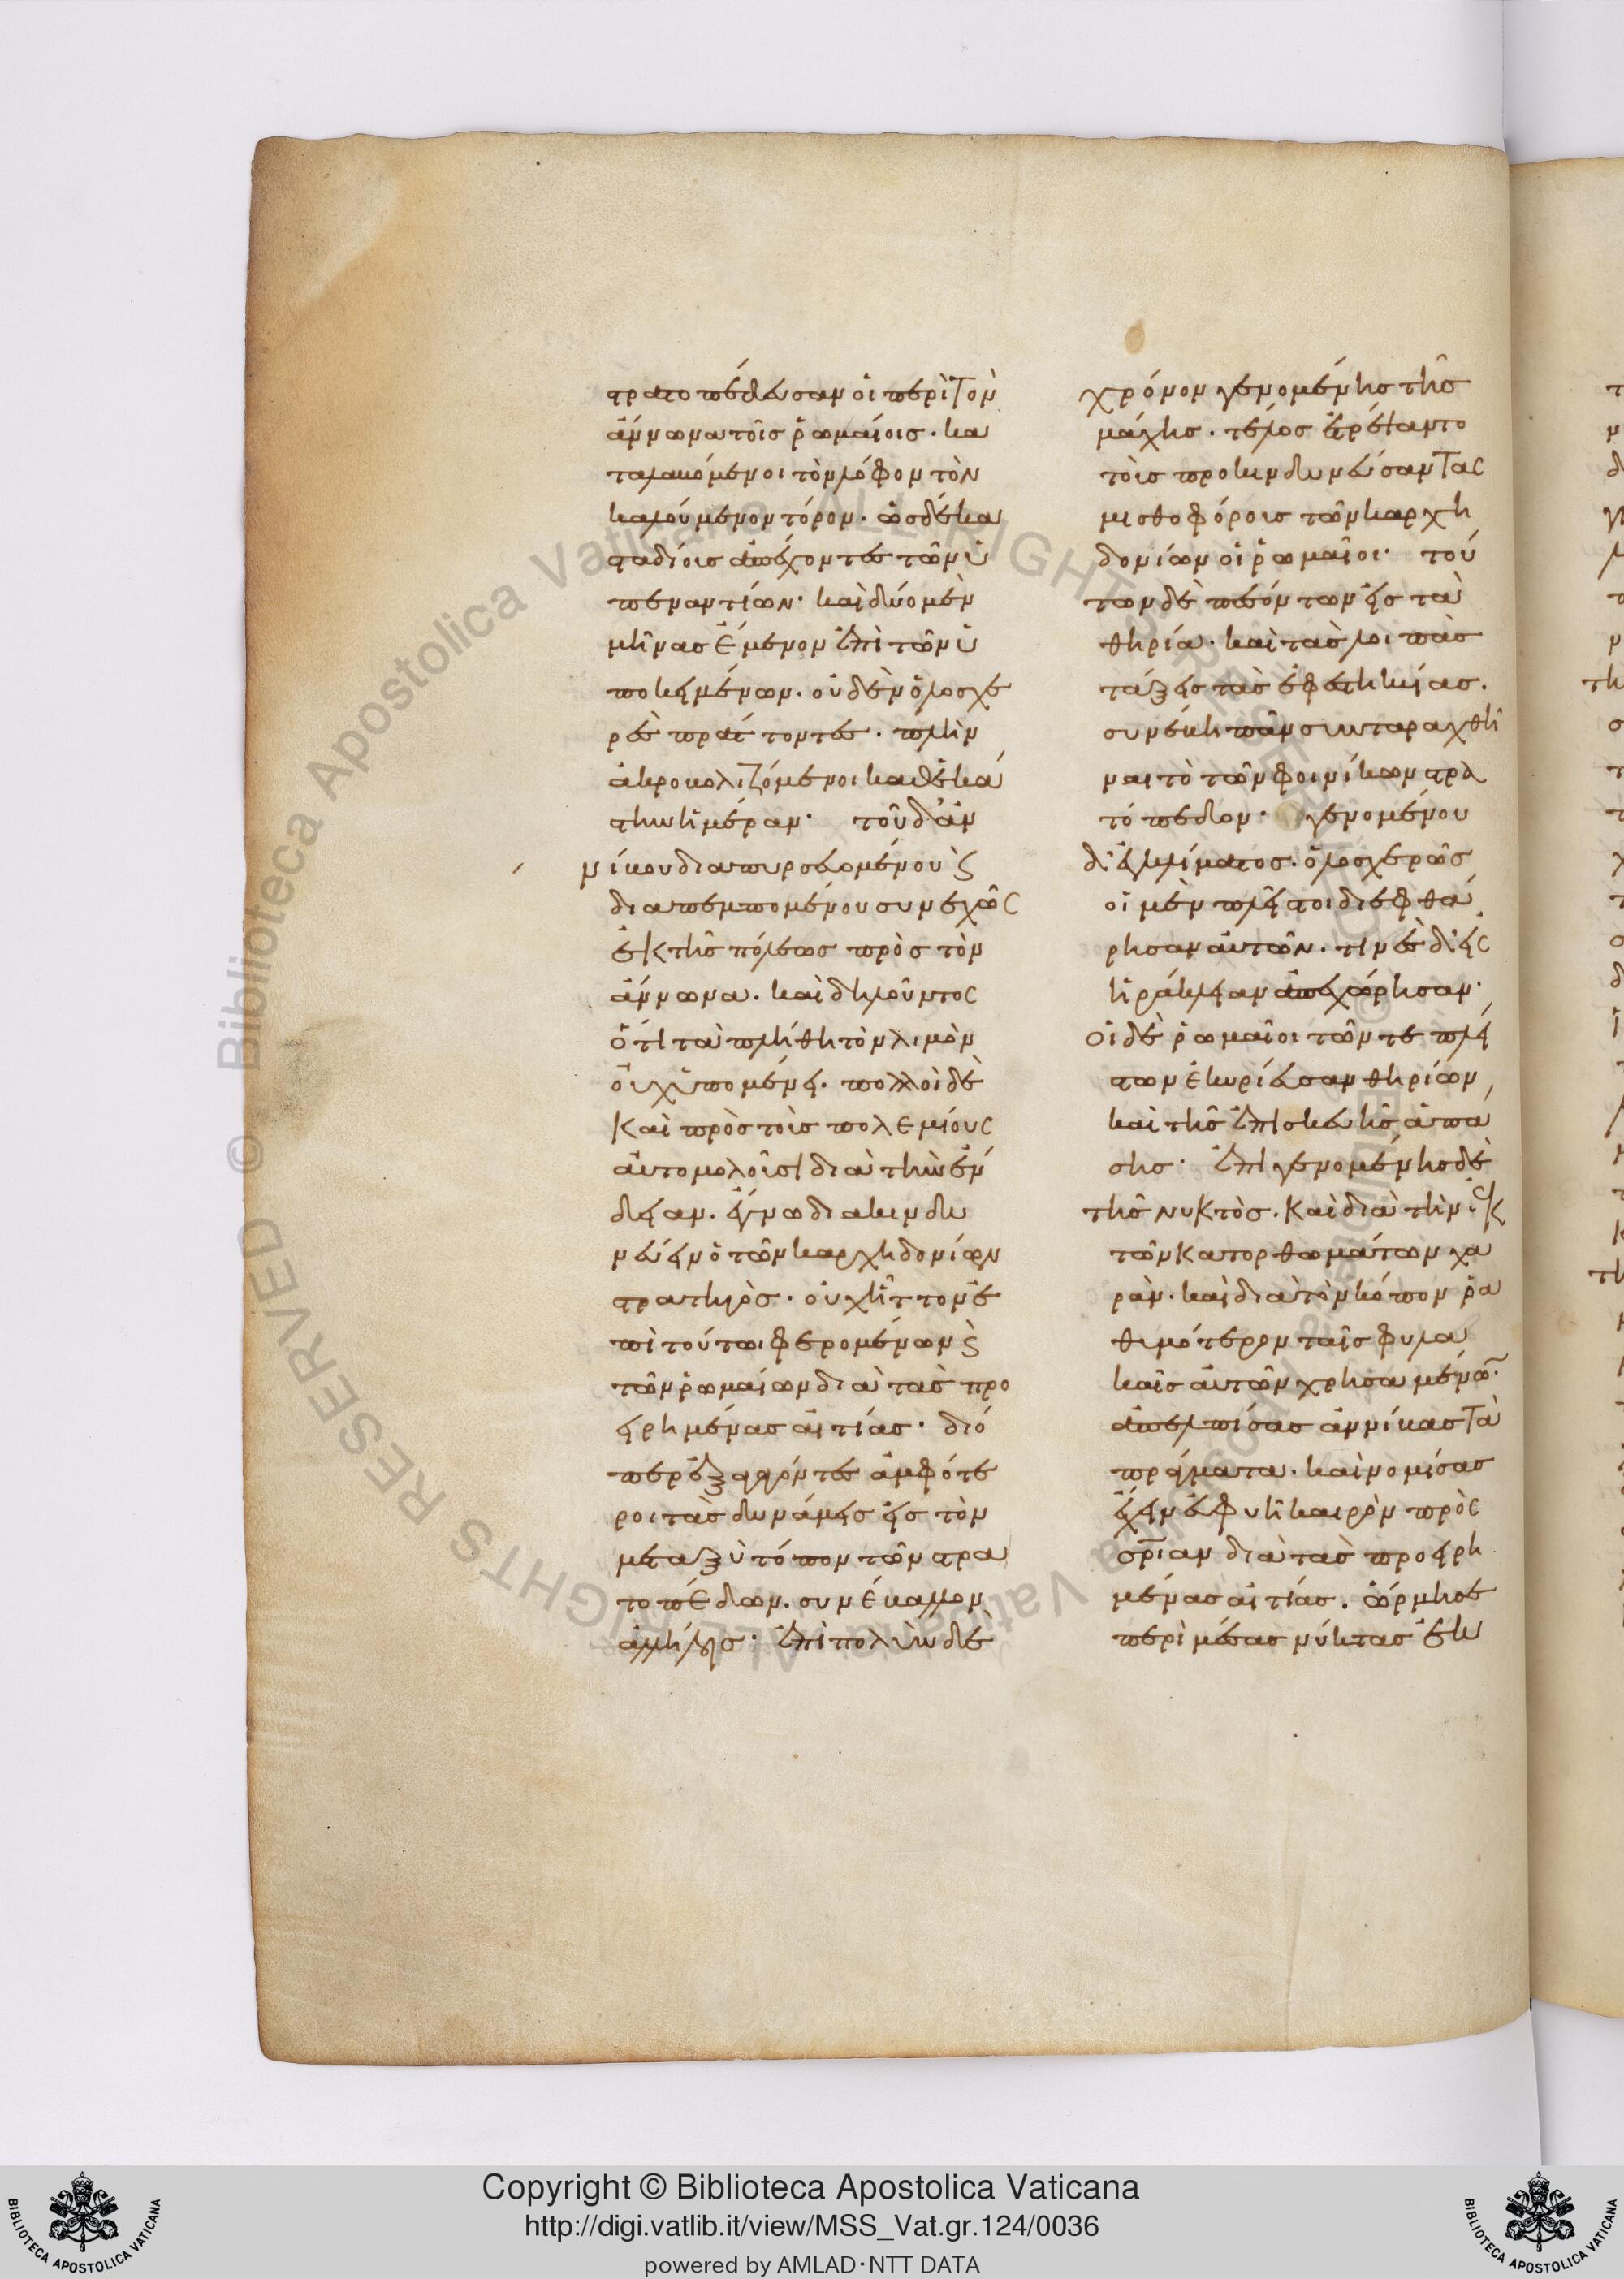 τρατοπέδευσαν οἱ περὶ τὸν
ἄννωνα τοῖς ῥωμαίοις· κα
ταλαβόμενοι τὸν λόφον τὸν
καλούμενον τόρον· ὡς δέκα
σταδίοις ἀπέχοντες τῶν ὑ
πεναντίων· καὶ δύο μὲν
μῆνας ἔμενον ἐπὶ τῶν ὑ
ποκειμένων· οὐδὲν ὁλοσχε
ρὲς πράττοντες· πλὴν
ἀκροβολιζόμενοι καθ ἑκά
στην ἡμέραν· τοῦ δ' ἀν
νίβου διαπυρσευομένου ϛ
διαπεμπομένου συνεχῶς
ἐκ τῆς πόλεως πρὸς τὸν
ἄννωνα· καὶ δηλοῦντος
ὅτι τὰ πλήθη τὸν λιμὸν
οὐχ ὑπομένει· πολλοὶ δὲ
καὶ πρὸς τοὺς πολεμίους
αὐτομολοῦσι διὰ τὴν ἔν
δειαν· ἔγνω διακινδυ
νεύειν ὁ τῶν καρχηδονίων
στρατηγὸς· οὐχ ἧττον ἐ
πὶ τοῦτο φερομένων ϛ
τῶν ῥωμαίων διὰ τὰς προ
ειρημένας αἰτίας· διό
περ ἐξαγαγόντες ἀμφότε
ροι τὰς δυνάμεις εἰς τὸν
μεταξὺ τόπον τῶν στρα
τοπέδων· συνέβαλλον
ἀλλήλοις· ἐπὶ πολὺν δὲ
χρόνον γενομένης τῆς
μάχης· τέλος ἐτρέψαντο
τοὺς προκινδυνεύσαντας
μισθοφόρους τῶν καρχη
δονίων οἱ ῥωμαῖοι· τού
των δὲ πεσόντων εἰς τὰ
θηρία· καὶ τὰς λοιπὰς
τάξεις τὰς ἐφεστηκυίας·
συνέβη πᾶν συνταραχθῆ
ναι τὸ τῶν φοινίκων στρα
τόπεδον· γενομένου
δ' ἐγκλίματος· ὁλοσχερῶς
οἱ μὲν πλεῖστοι διεφθά
ρησαν αὐτῶν· τινὲς δ' εἰς
ἡράκλειαν ἀπεχώρησαν·
οἱ δὲ ῥωμαῖοι τῶν τε πλεί
στων ἐκυρίευσαν θηρίων
καὶ τῆς ἐπισκευῆς ἁπά
σης· ἐπιγενομένης δὲ
τῆς νυκτὸς· καὶ διὰ τὴν ἐκ
τῶν κατορθωμάτων χα
ρὰν· καὶ διὰ τὸν κόπον ῥα
θυμότερον ταῖς φυλα
καῖς αὐτῶν χρησαμένων·
ἀπελπίσας ἀννίβας τὰ
πράγματα· καὶ νομίσας
ἔχειν εὐφυῆ καιρὸν πρὸς
σωτηρίαν διὰ τὰς προειρη
μένας αἰτίας· ὥρμησε
περὶ μέσας νύκτας ἐκ